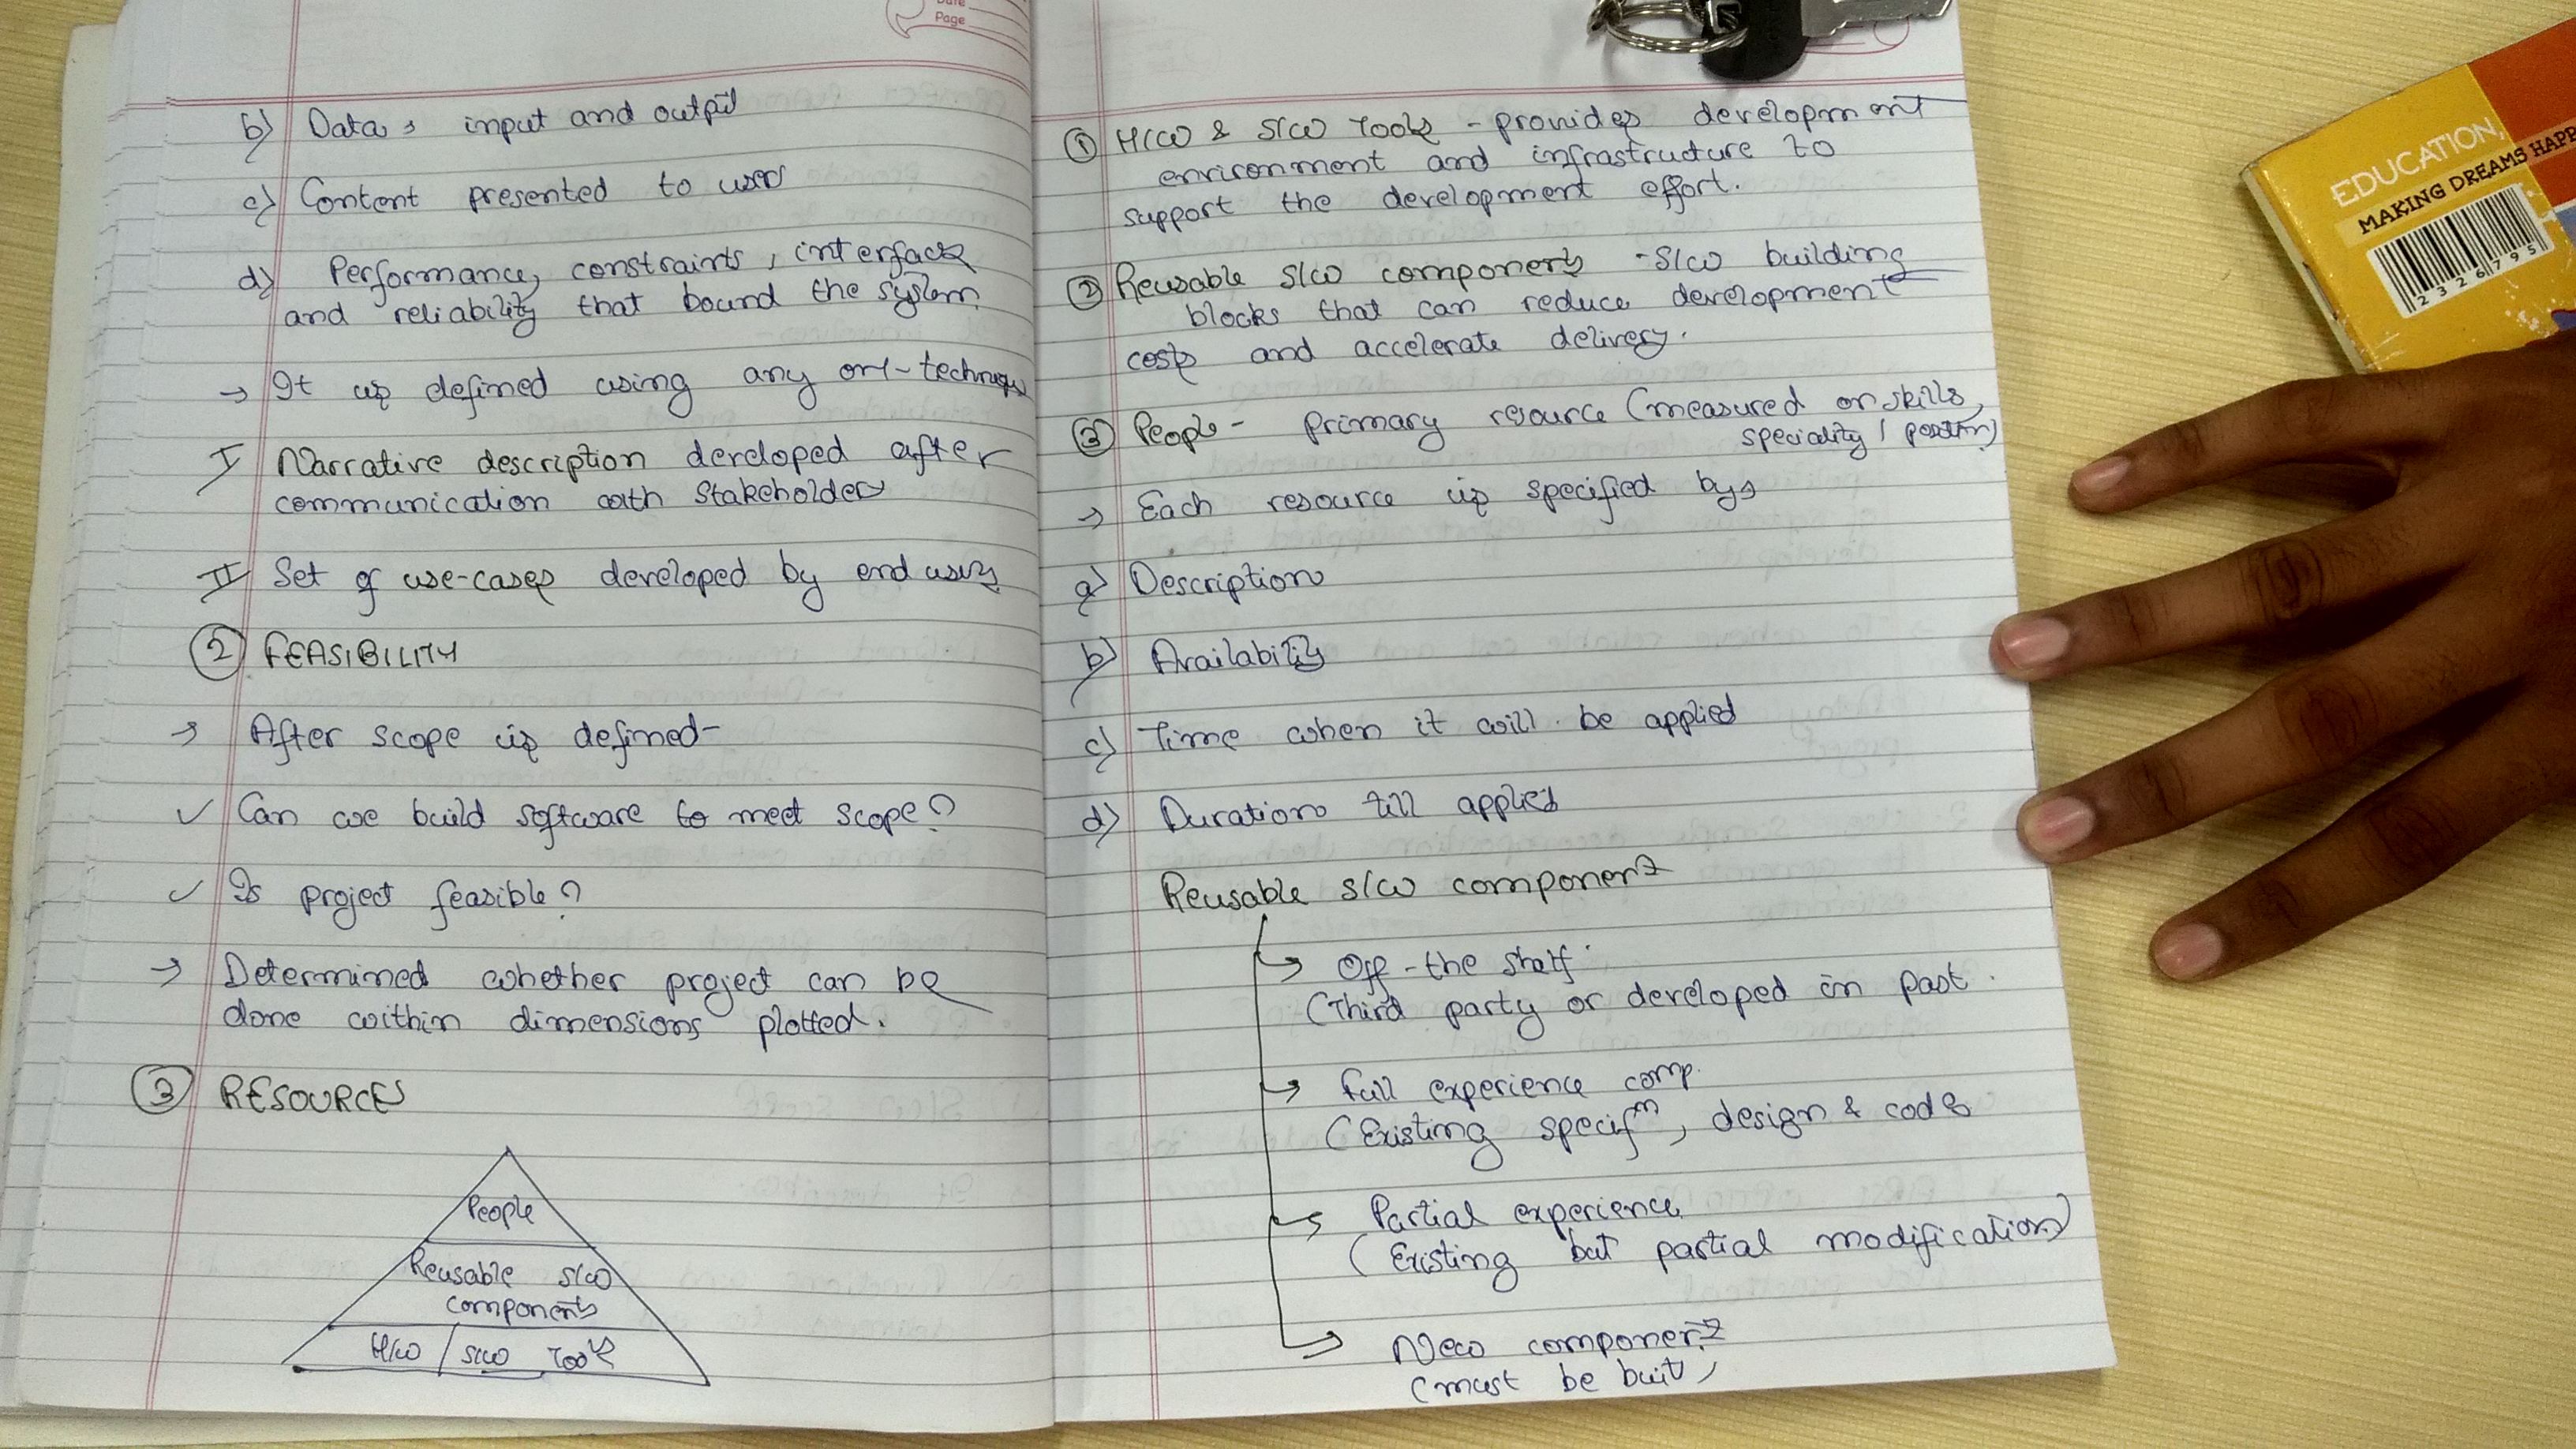 Date
Page
b) Data, input and output
c) Content presented to users
d) Performance, constraints, interfaces
and reliability that bound the system
→ It is defined using any one technique
I Narrative description developed after
communication with stakeholders
II Set of use-cases developed by end users
② FEASIBILITY
→ After scope is defined-
✓ Can we build software to meet scope?
✓ Is project feasible?
→ Determined whether project can be
done within dimensions plotted.
③ RESOURCES
People
Reusable S/W
components
H/W / S/W Tools
① H/W & S/W Tools - provides development
environment and infrastructure to
support the development effort.
② Reusable S/W components - S/W building
blocks that can reduce development
costs and accelerate delivery.
③ People - Primary resource (measured on skills,
speciality, position)
→ Each resource is specified by,
a) Description
b) Availability
c) Time when it will be applied
d) Duration till applied
Reusable S/W components
→ Off-the shelf
(Third party or developed in past.
→ Full experience comp.
(Existing specifn, design & codes
→ Partial experience
(Existing but partial modification)
→ New components
(must be built)
EDUCATION,
MAKING DREAMS HAPP
2326795